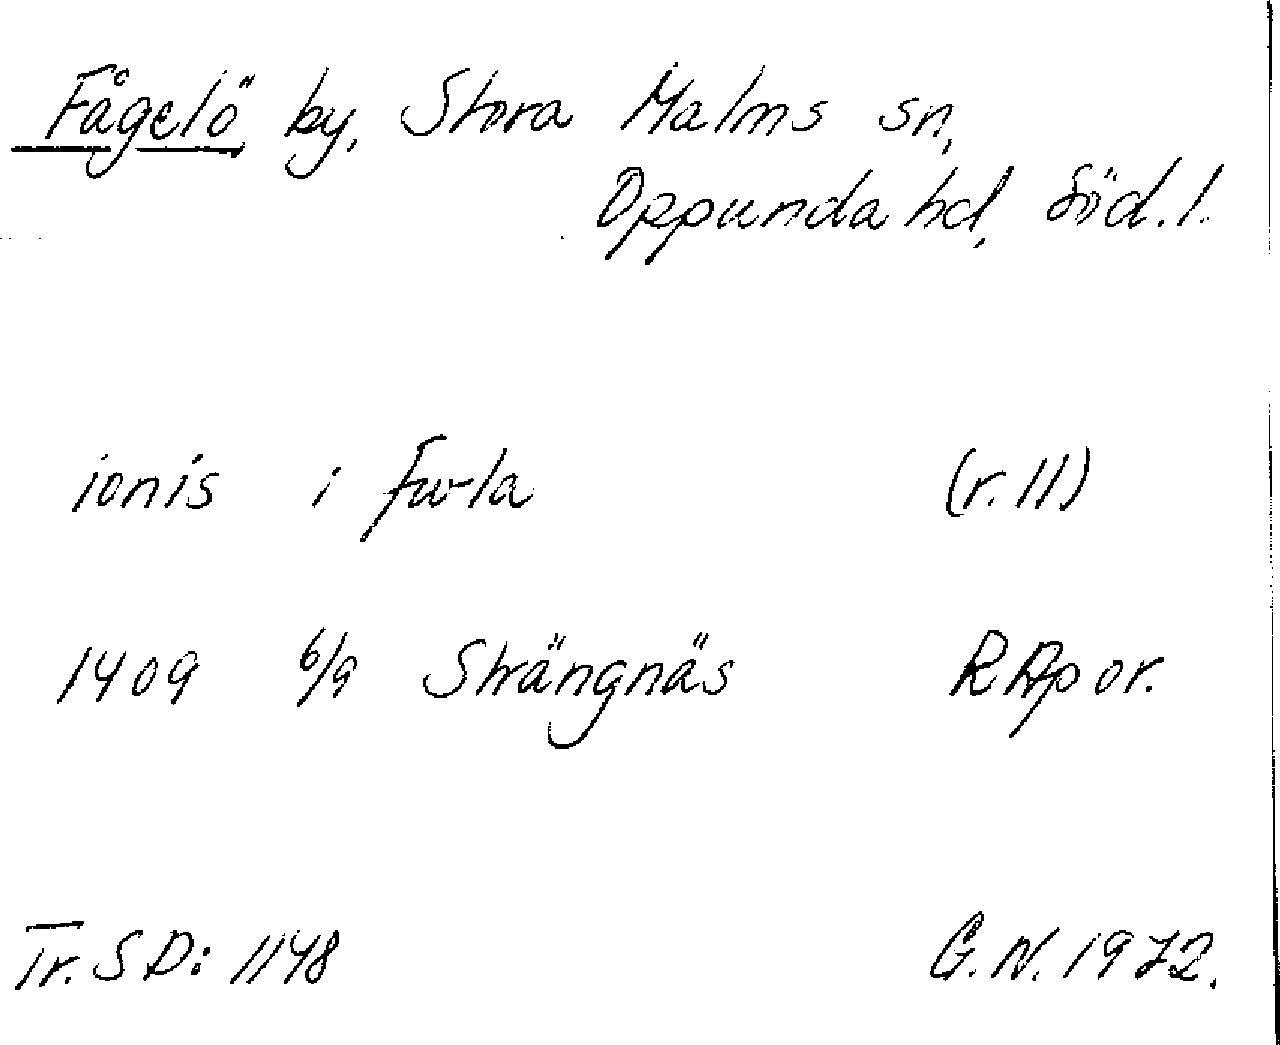 Fågelö by, Stora Malms sn,
Oppunda hd, Söd. l.
ionis i fwla (r. 11)
1409 6/9 Strängnäs RAp or.
Tr. SD: 1148 G. N. 1972.